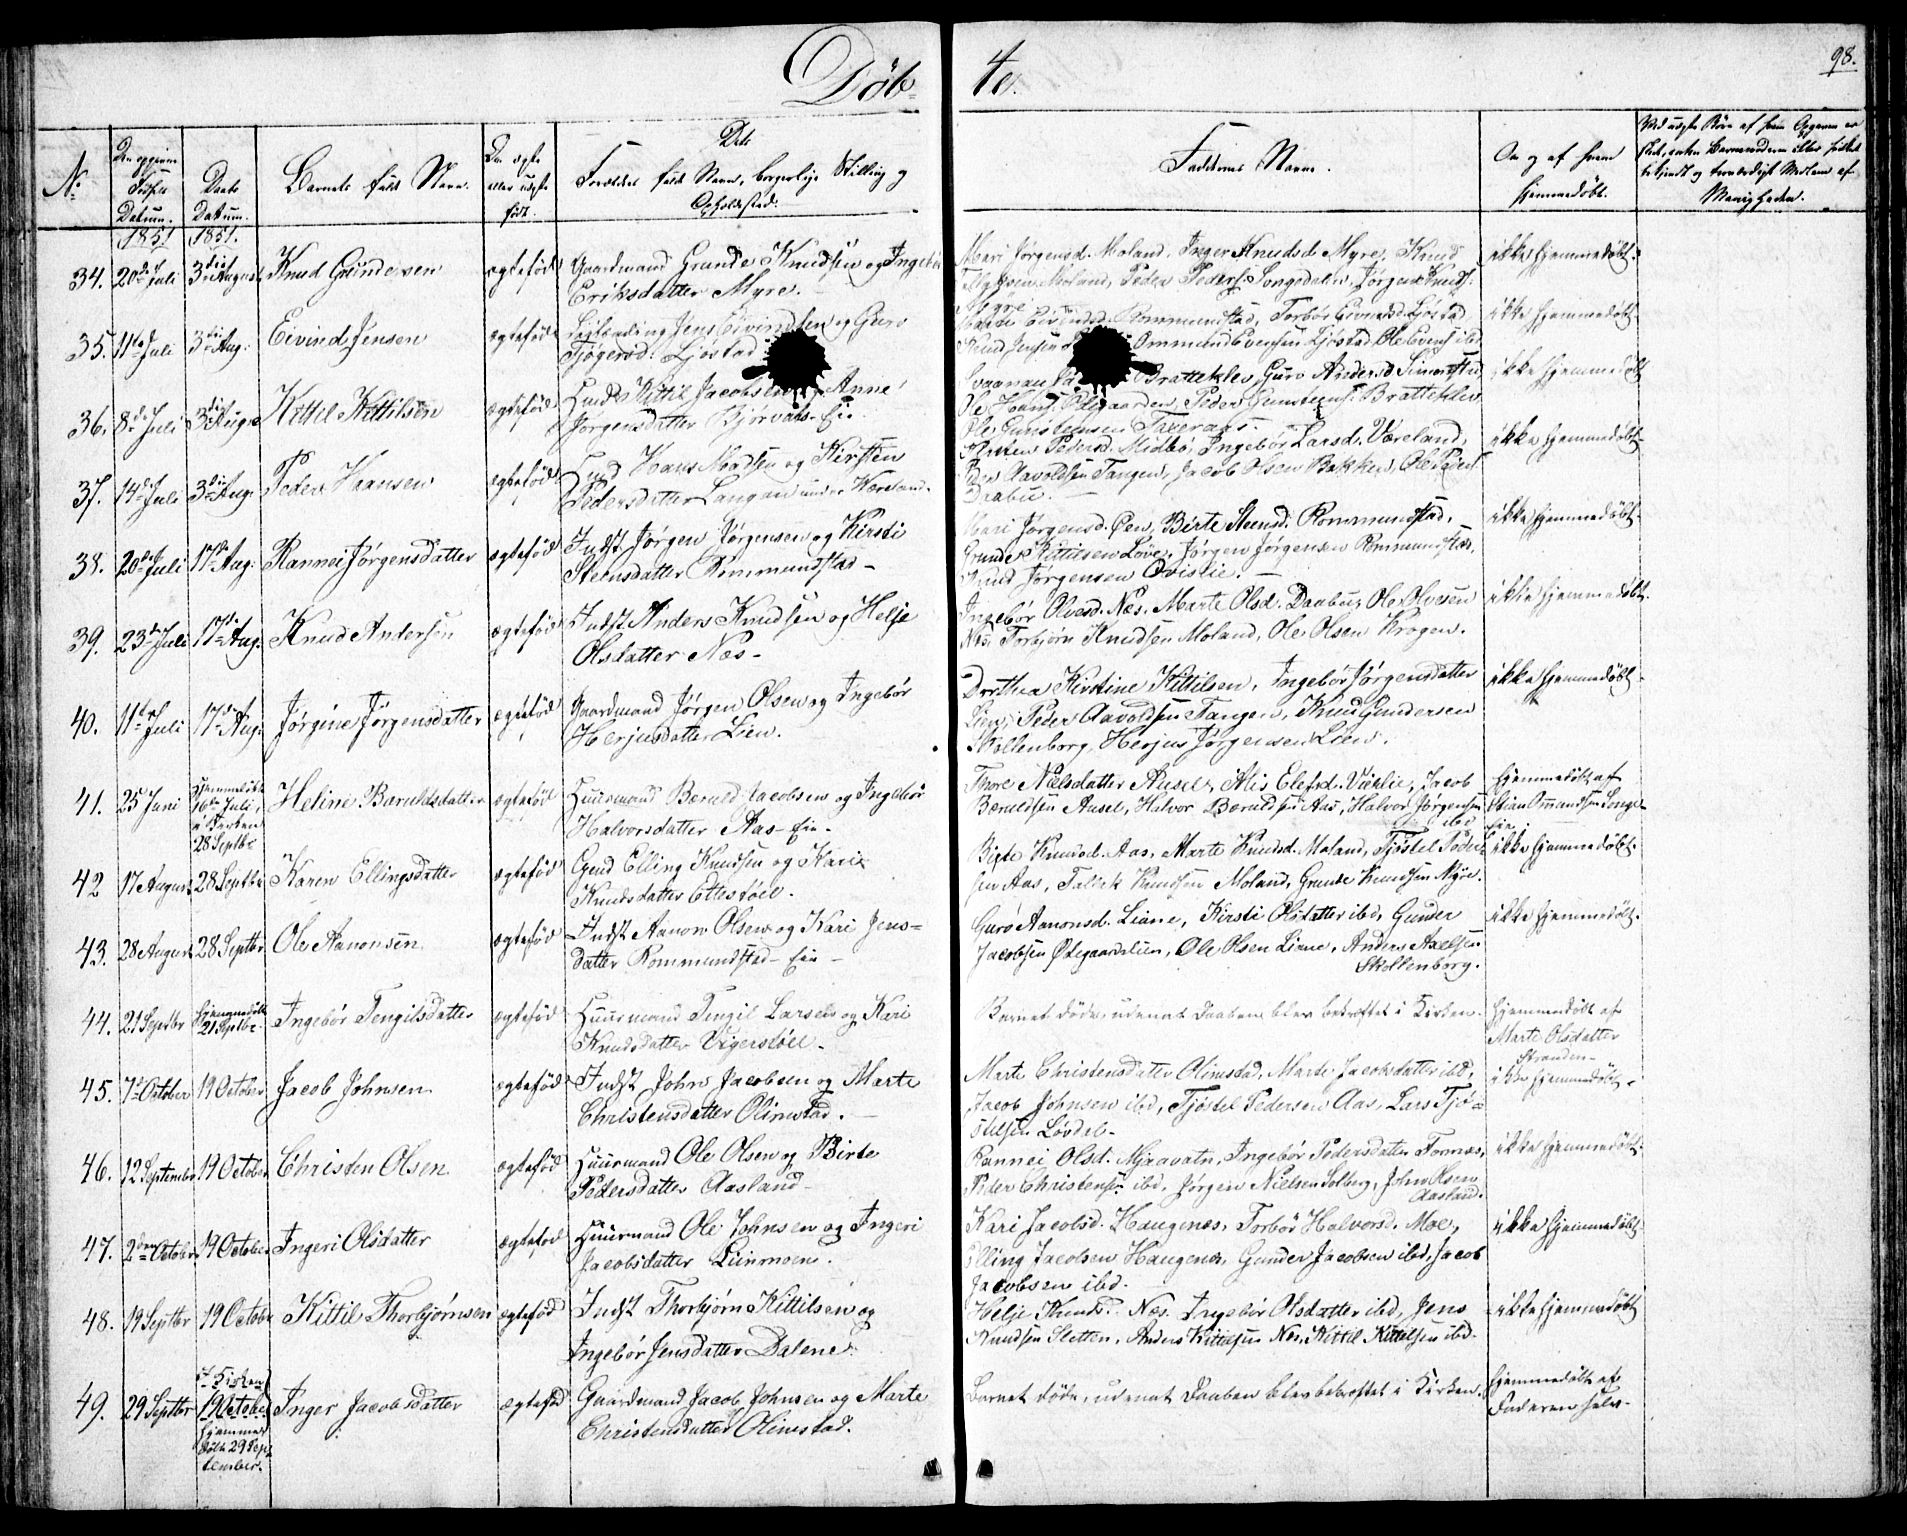 Døb-
te.
98.
No
Den opgivne
Fødsels
Datum.
Daabs
Datum.
Barnets fulde Navn.
Om ægte
eller uægte
født.
Dets
Forældres fulde Navn, borgerlige Stilling og
Opholdssted.
Faddernes Navne.
Om og af hvem
hjemmedøbt.
Ved uægte Børn af hvem Opgaven er
skeet, enten Barnemoderen eller
bekjendt og troværdigt Medlem af
Menigheden.
1851 1851.
34. 20de Juli 3die August Knud Grundesen ægtefødt Gaardmand Grunde Knudsen og Ingebør
Eriksdatter Myre.
Mari Jørgensd. Moland, Inger Knudsd. Myre, Knud
Moland, Peder Peders. Songedalen, Jørgen Knuds.
Myre.
ikke hjemmedøbt.
35. 11te Juli 3die Aug. Eivind Jensen ægtefødt Jens Eivindsen og Guro
Tjøgersd. Ljøstad
Eivindsd. Rommundstad, Torbør Eivindsd. Ljøstad
Knud Jensen Ommund Evensen Ljøstad, Ole Evens. ibd.
ikke hjemmedøbt
36. 8de Juli 3die Aug. Kittil Kittilsen ægtefødt Huusm. Kittil Jacobsen og Anne
Jørgensdatter Bjørvats-Eie
Svaanau Bratteklev, Guro Andersd. Simonstad,
Ole Hans. Ødegaarden, Peder Gunsteens. Bratteklev
Ole Gunsteensen
ikke hjemmedøbt
37. 14de Juli 3die Aug. Peder Hansen ægtefødt Hans Madsen og Kirsten
Pedersdatter Langan under Væreland.
Kirsten Pedersd. Midbø, Ingebør Larsd. Væreland,
Peder Aavoldsen Tangen, Jacob Olsen Bakken, Ole Peders.
Drabu.
ikke hjemmedøbt
38. 20de Juli 17de Aug. Rannei Jørgensdatter ægtefødt Indst Jørgen Jørgensen og Kirsti
Steensdatter Rommundstad
Mari Jørgensd. Øen, Birte Steensd. Rommundstad,
Grunde Kittilsen Løver, Jørgen Jørgensen Rommundstad,
Knud Jørgensen Qvislie.
ikke hjemmedøbt.
39. 23de Juli 17de Aug. Knud Andersen ægtefødt Indst Anders Knudsen og Helje
Olsdatter Næs
Ingebør Olvesd. Næs, Marte Olsd. Daabu, Ole Olvesen
Næs, Torbjørn Knudsen Moland, Ole Olsen Krogen.
ikke hjemmedøbt.
40. 11te Juli 17de Aug. Jørgine Jørgensdatter ægtefødt Gaardmand Jørgen Olsen og Ingebør
Herjusdatter Lien.
Dorthea Kirstine Kittilsen, Ingebør Jørgensdatter
Lien, Peder Aavoldsen Tangen, Knud Gundersen
Skollenborg, Herjus Jørgensen Lien.
ikke hjemmedøbt
41. 25 Juni Hjemmedøbt
16de Juli,
i Kirken
28 Septbr Heline Baruldsdatter ægtefødt Huusmand Beruld Jacobsen og Ingebør
Halvorsdatter Aas-Eie
Thore Nielsdatter Ausel, Alis Elefsd. Vaklie, Jacob
Beruldsen Ausel, Halvor Beruldsen Aas, Halvor Jørgensen
ibd
hjemmedøbt af
Stian Ommundsen Songe-
Eie
42 17 August 28 Septbr Karen Ellingsdatter ægtefødt Elling Knudsen og Kari
Knudsdatter Ettestøel.
Birte Knudsd. Aas, Marte Knudsd. Moland, Tjøstel Peder-
sen Aas, Tallek Knudsen Moland, Grunde Knudsen Myre.
ikke hjemmedøbt.
43. 28 August 28 Septbr Ole Aanonsen ægtefødt Indst Aanon Olsen og Kari Jens-
datter Rommundstad-Eie
Guro Aanonsd. Liane, Kirsti Olsdatter ibd, Gunder
Jacobsen Ødegaardslien, Ole Olsen Liane, Anders Axelsen
Skollenborg.
ikke hjemmedøbt.
44. 21 Septbr hjemmedøbt
21 Septbr Ingebør Tengilsdatter ægtefødt Huusmand Tengil Larsen og Kari
Knudsdatter Vigerstøel
Barnet døde, udenat Daaben blev bekræftet i Kirken.
hjemmedøbt af
Marte Olsdatter
Stranden
45. 7de October 19 October Jacob Johnsen ægtefødt Indst John Jacobsen og Marte
Christensdatter Olimstad.
Marte Christensdatter Olimstad, Marte Jacobsdatter ibd,
Jacob Johnsen ibd, Tjøstel Pedersen Aas, Lars Tjø-
stelsen Løvdal
ikke hjemmedøbt
46. 12 September 19 October Christen Olsen ægtefødt Huusmand Ole Olsen og Birte
Pedersdatter Aasland
Rannei Olsd. Mjaavatn, Ingebør Pedersdatter Fornæs,
Peder Christens. ibd, Jørgen Nielsen Solberg, John Olsen
Aasland.
ikke hjemmedøbt.
47. 2den October 19 October Ingeri Olsdatter ægtefød Huusmand Ole Johnsen og Ingeri
Jacobsdatter Liinmoen.
Kari Jacobsd. Haugenæs, Torbør Halvorsd. Moe,
Elling Jacobsen Haugenæs, Gunder Jacobsen ibd, Jacob
Jacobsen ibd.
ikke hjemmedøbt.
48. 19 Septbr 19 October Kittil Thorbjørnsen ægtefød Indst Thorbjørn Kittilsen og
Ingebør Jensdatter Dalene.
Helje Knudsd. Næs, Ingebør Olsdatter ibd, Jens
Knudsen Sletten, Anders Kittilsen Næs, Kittil Kittilsen ibd.
ikke hjemmedøbt
49. 29 Septbr I Kirken
19 October
hjemme-
døbt 29 Sep-
tember. Inger Jacobsdatter ægtefød Gaardmand Jacob Johnsen og Marte
Christensdatter Olimstad.
Barnet døde, udenat Daaben blev bekræftet i Kirken.
hjemmedøbt af
Faderen selv